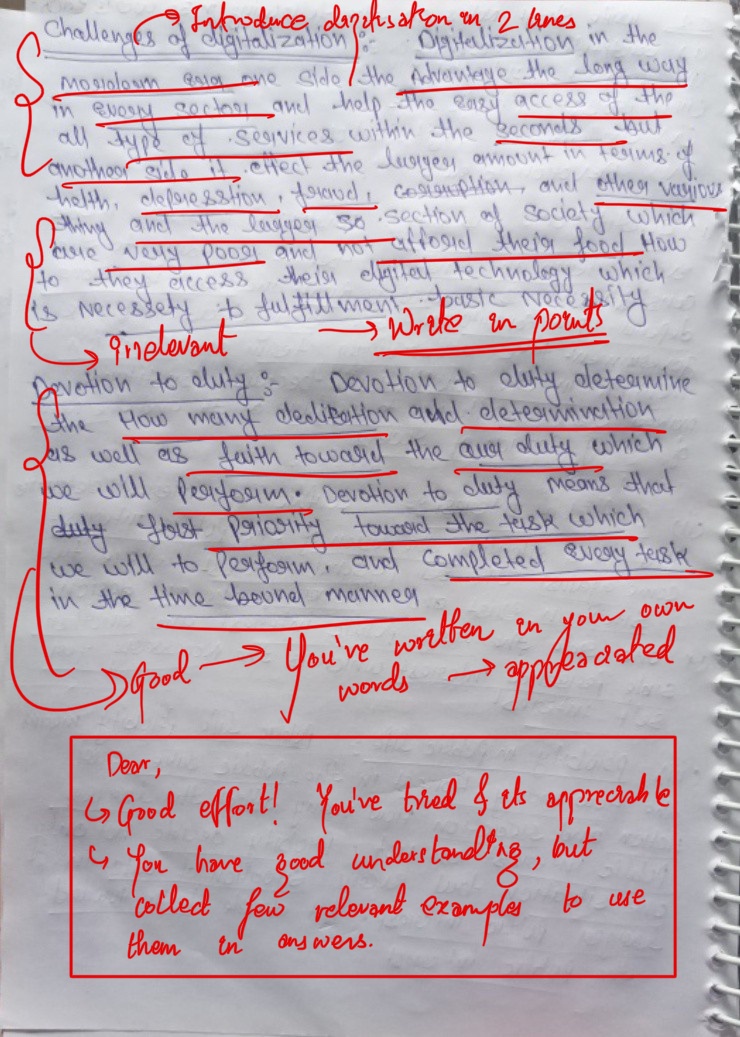 → Introduce digitisation in 2 lines
Challenges of digitalization :- Digitalization in the
one side the Advantage the long way
in every sector and help the easy access of the
all type of services within the seconds but
another side it effect the larger amount in terms of
helth, depresstion, fraud, corruption and other various
thing and the larger so section of society which
are very poor and not afford their food How
to they access their digital technology which
is Necessety to fulfillment basic necessity
→ irrelevant → Write in points
Devotion to duty :- Devotion to duty determine
the How many dedication and determination
as well as faith toward the our duty which
we will Perform. Devotion to duty means that
duty first Priority toward the task which
we will to Perform, and completed every task
in the time bound manner
Good → You've written in your own
words → appreaciated
Dear,
↳ Good effort! You've tried & its appreciable
↳ You have good understanding, but
collect few relevant examples to use
them in answers.